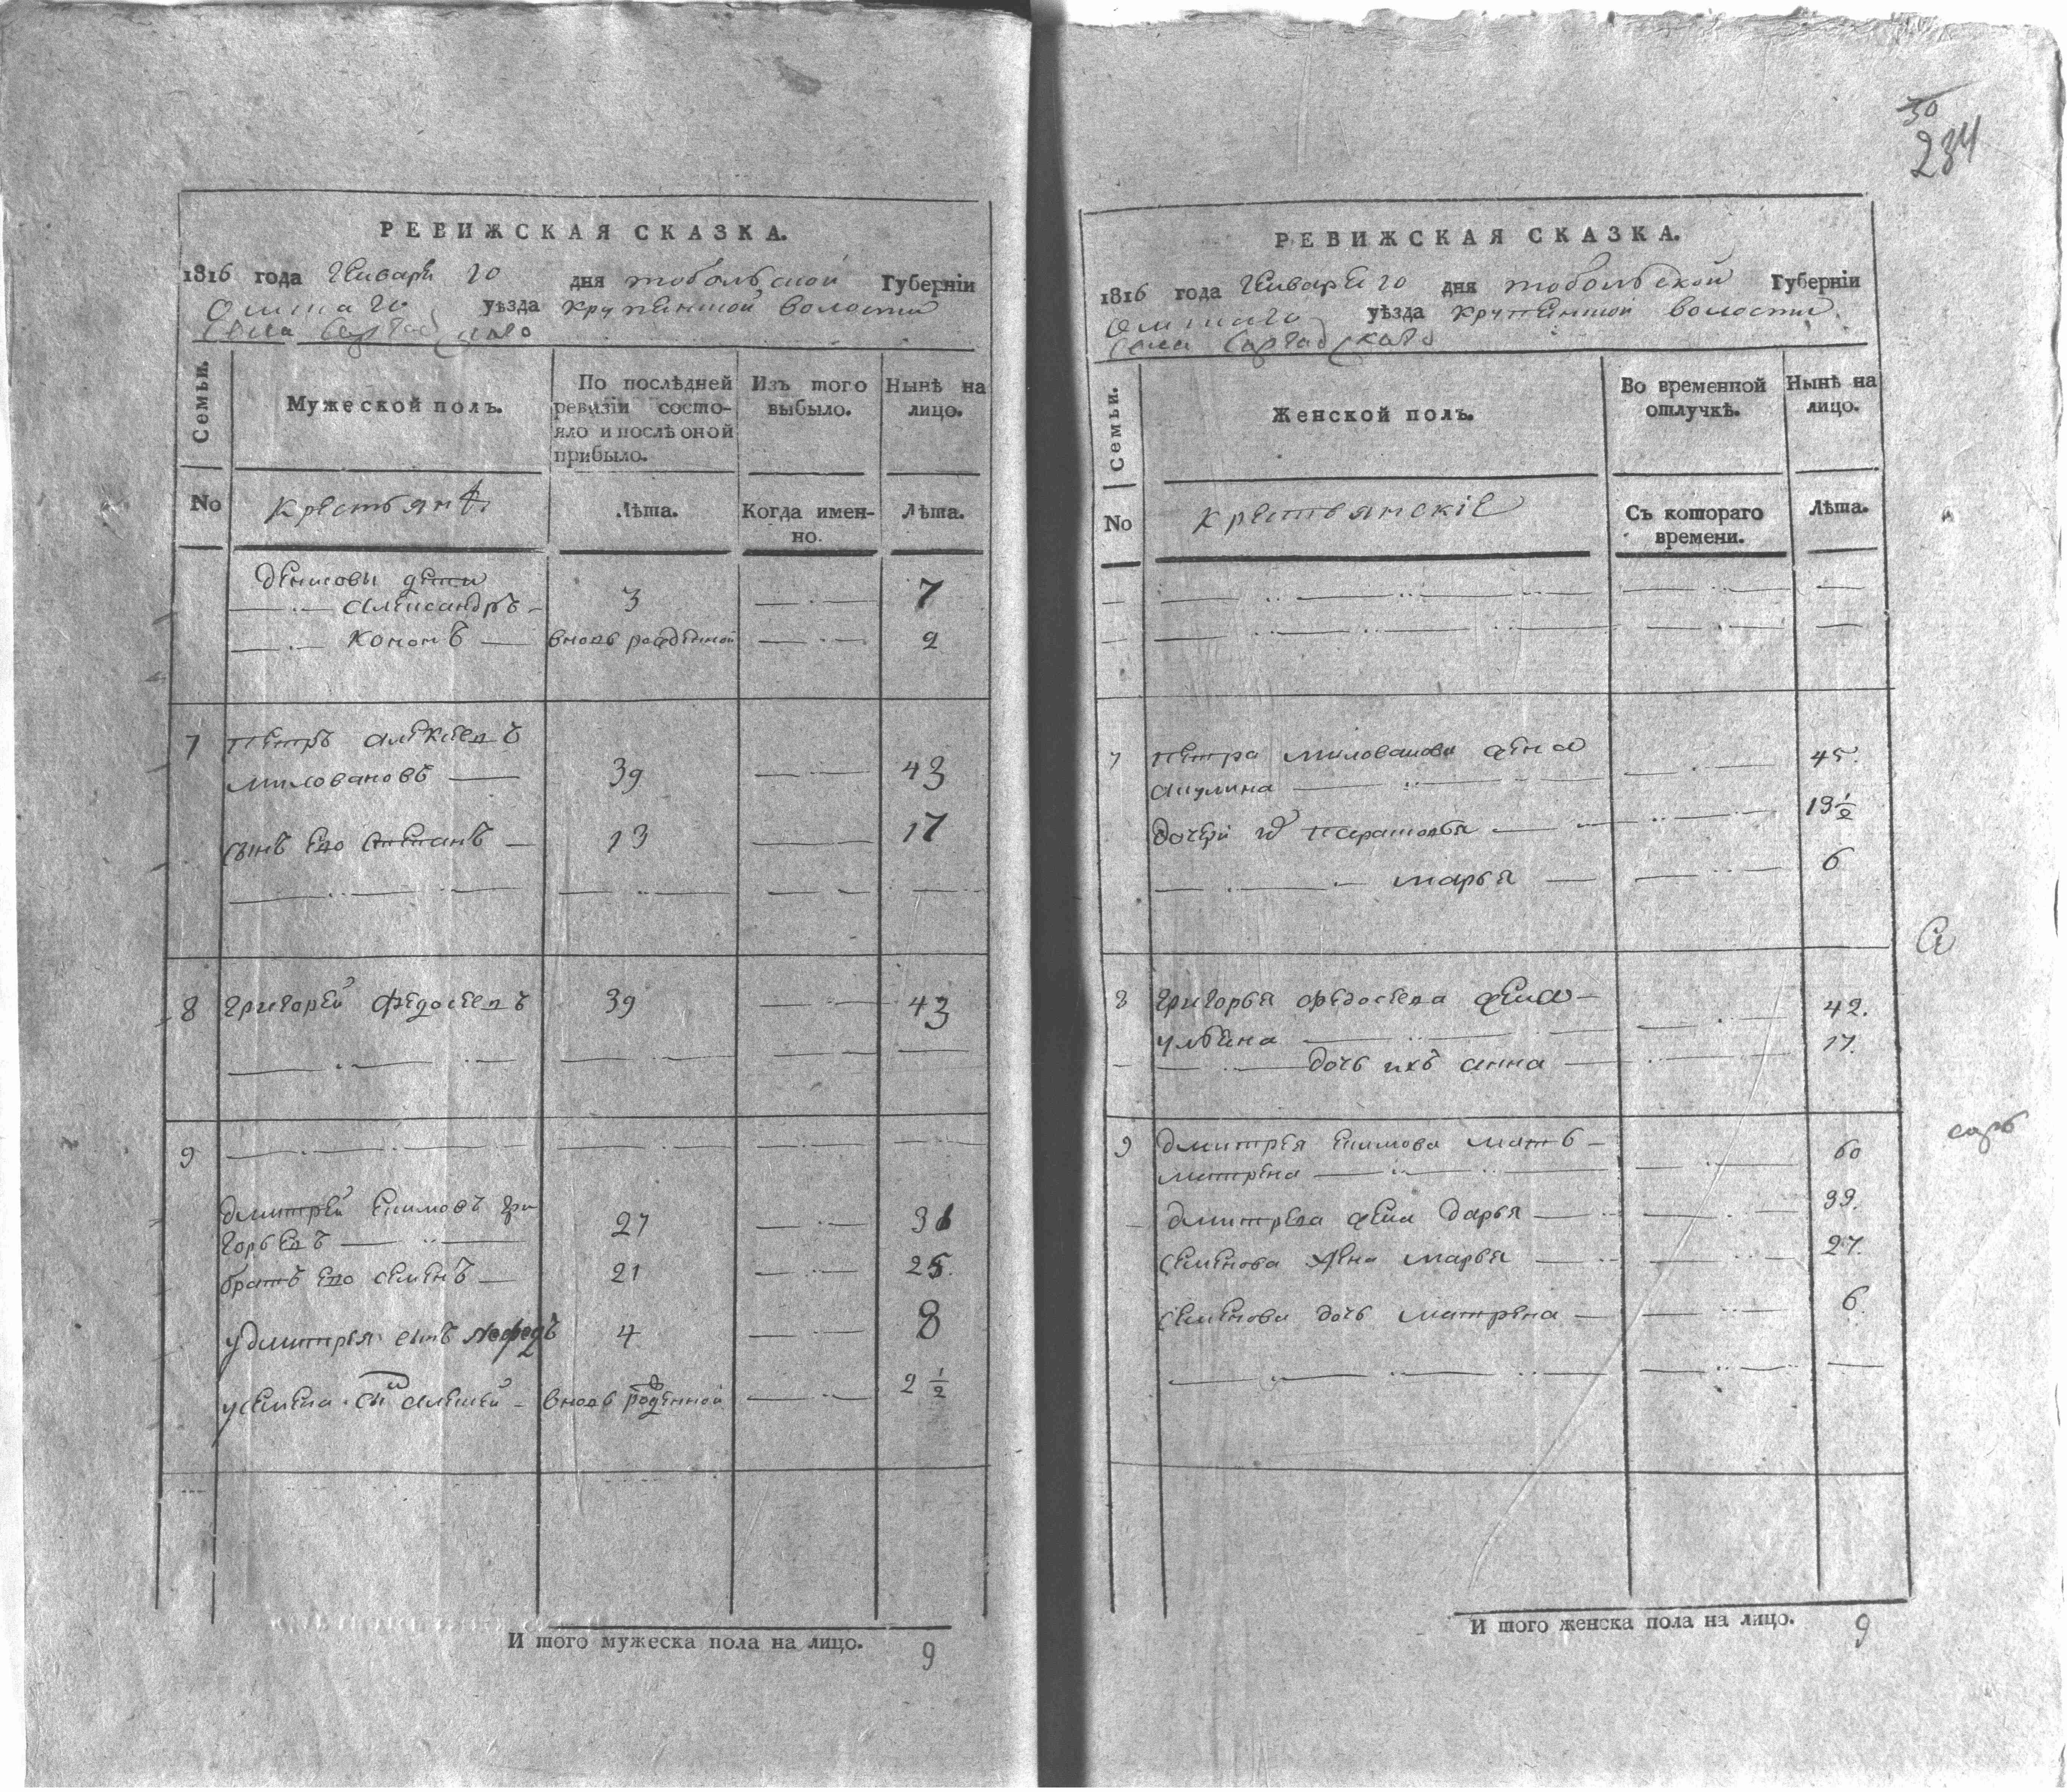 РЕВИЖСКАЯ СКАЗКА.
1816 года Генваря 10 дня тобольской Губерніи
Омскаго уѣзда крупенской волости
Села
Семьи.
Мужеской полъ.
По послѣдней ревизіи состо-
яло и послѣ оной
прибыло.
Изъ того выбыло.
Нынѣ на лицо.
No крестьянѣ
Лѣта.
Когда имен-
но.
Лѣта.
Денисовы дети
Александръ 3 7
Кононъ вновь рожденной 2
7 Петръ Алексеевъ
Миловановъ 39 43
сынъ его Степанъ 13 17
8 Григорей Федосеевъ 39 43
9
Дмитрей Екимовъ Гри
горьевъ 27 31
братъ его Семенъ 21 25.
у Дмитрья сынъ Нефедъ 4 8
у Семена сынъ Алексей вновь рожденной 2 1/2
И того мужеска пола на лицо. 9
30
234
РЕВИЖСКАЯ СКАЗКА.
1816 года Генваря 10 дня тобольской Губерніи
Омскаго уѣзда крупенской волости
Села
Семьи.
Женской полъ.
Во временной
отлучкѣ.
Нынѣ на
лицо.
No крестьянскіе
Съ котораго
времени.
Лѣта.
7 Петра Милованова жена
Акулина 45.
дочери 1я Парасковья 19 1/2
Марья 6
8 Григорья Федосеева жена
Ульяна 42.
дочь ихъ Анна 17.
9 Дмитрья Екимова мать
Матрена 60
Дмитрева жена Дарья 33.
Семенова жена Марья 27.
Семенова дочь Матрена 6.
И того женска пола на лицо. 9